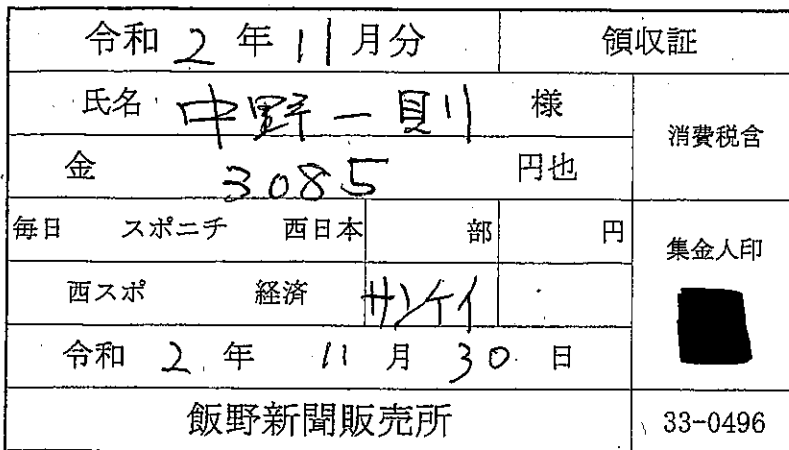 令和 2 年 11 月分 領収証
氏名 中野一則 様
消費税含
金 3085 円也
毎日 スポニチ 西日本 部 円
集金人印
西スポ 経済 サンケイ
令和 2 年 11 月 30 日
飯野新聞販売所 33-0496